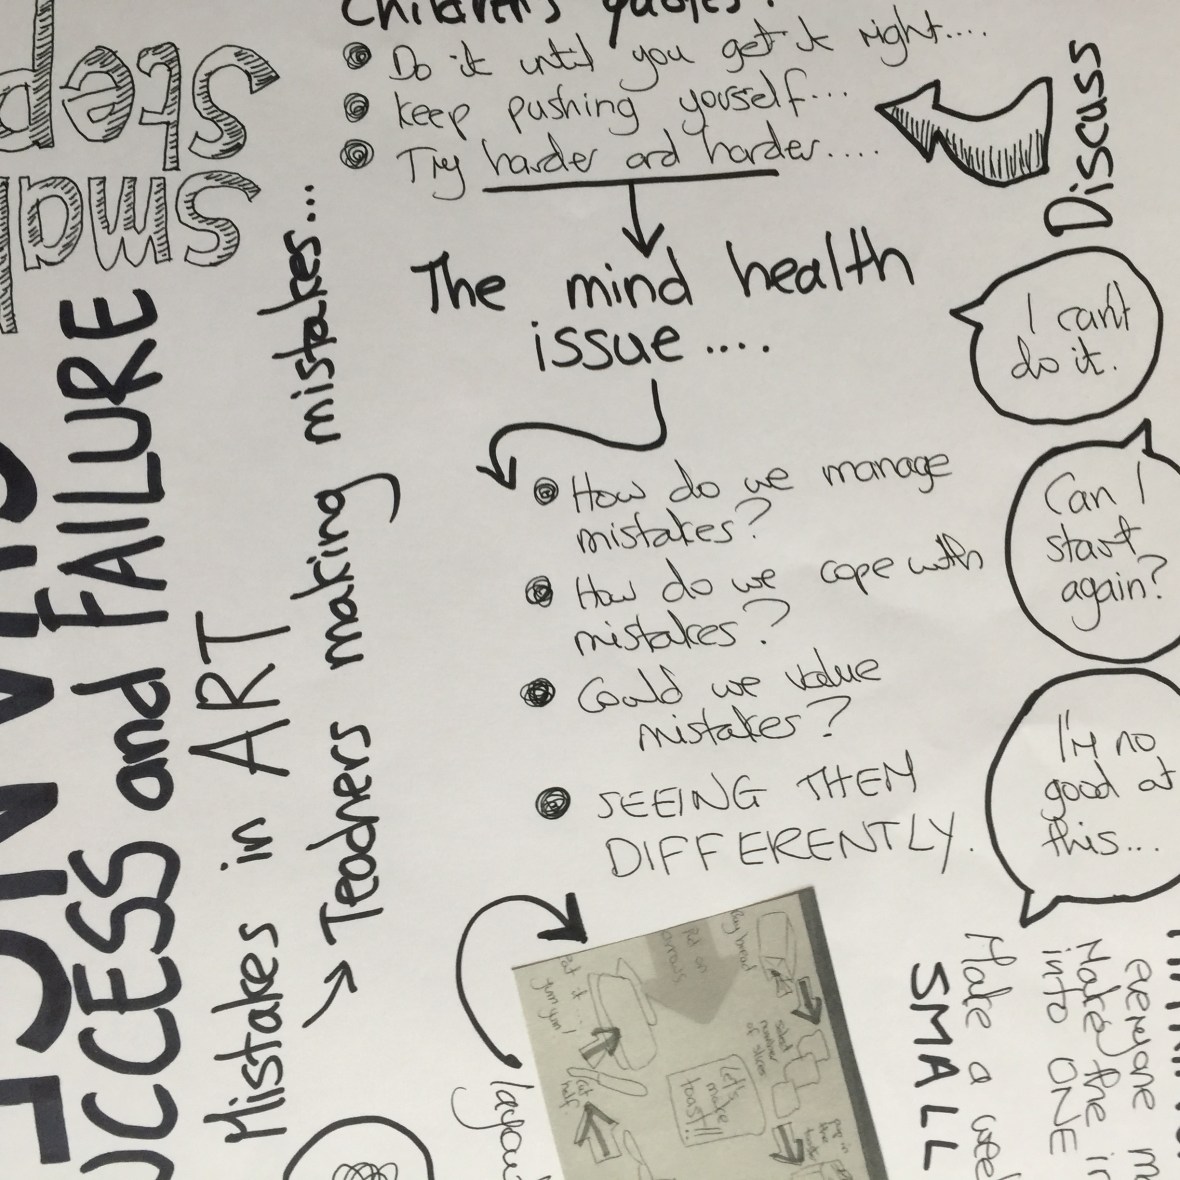 Children's quotes:
Do it until you get it right....
Keep pushing yourself...
Try harder and harder....
Discuss
The mind health
issue....
I can't
do it.
Can I
start
again?
I'm no
good at
this...
How do we manage
mistakes?
How do we cope with
mistakes?
Could we value
mistakes?
SEEING THEM
DIFFERENTLY.
step
FAILURE
and
Mistakes in ART
Teachers making mistakes...
Let's
make
toast!!
select
number
of slices
Put on
cut in
half
SMALL
Make a
into ONE
Make the
everyone